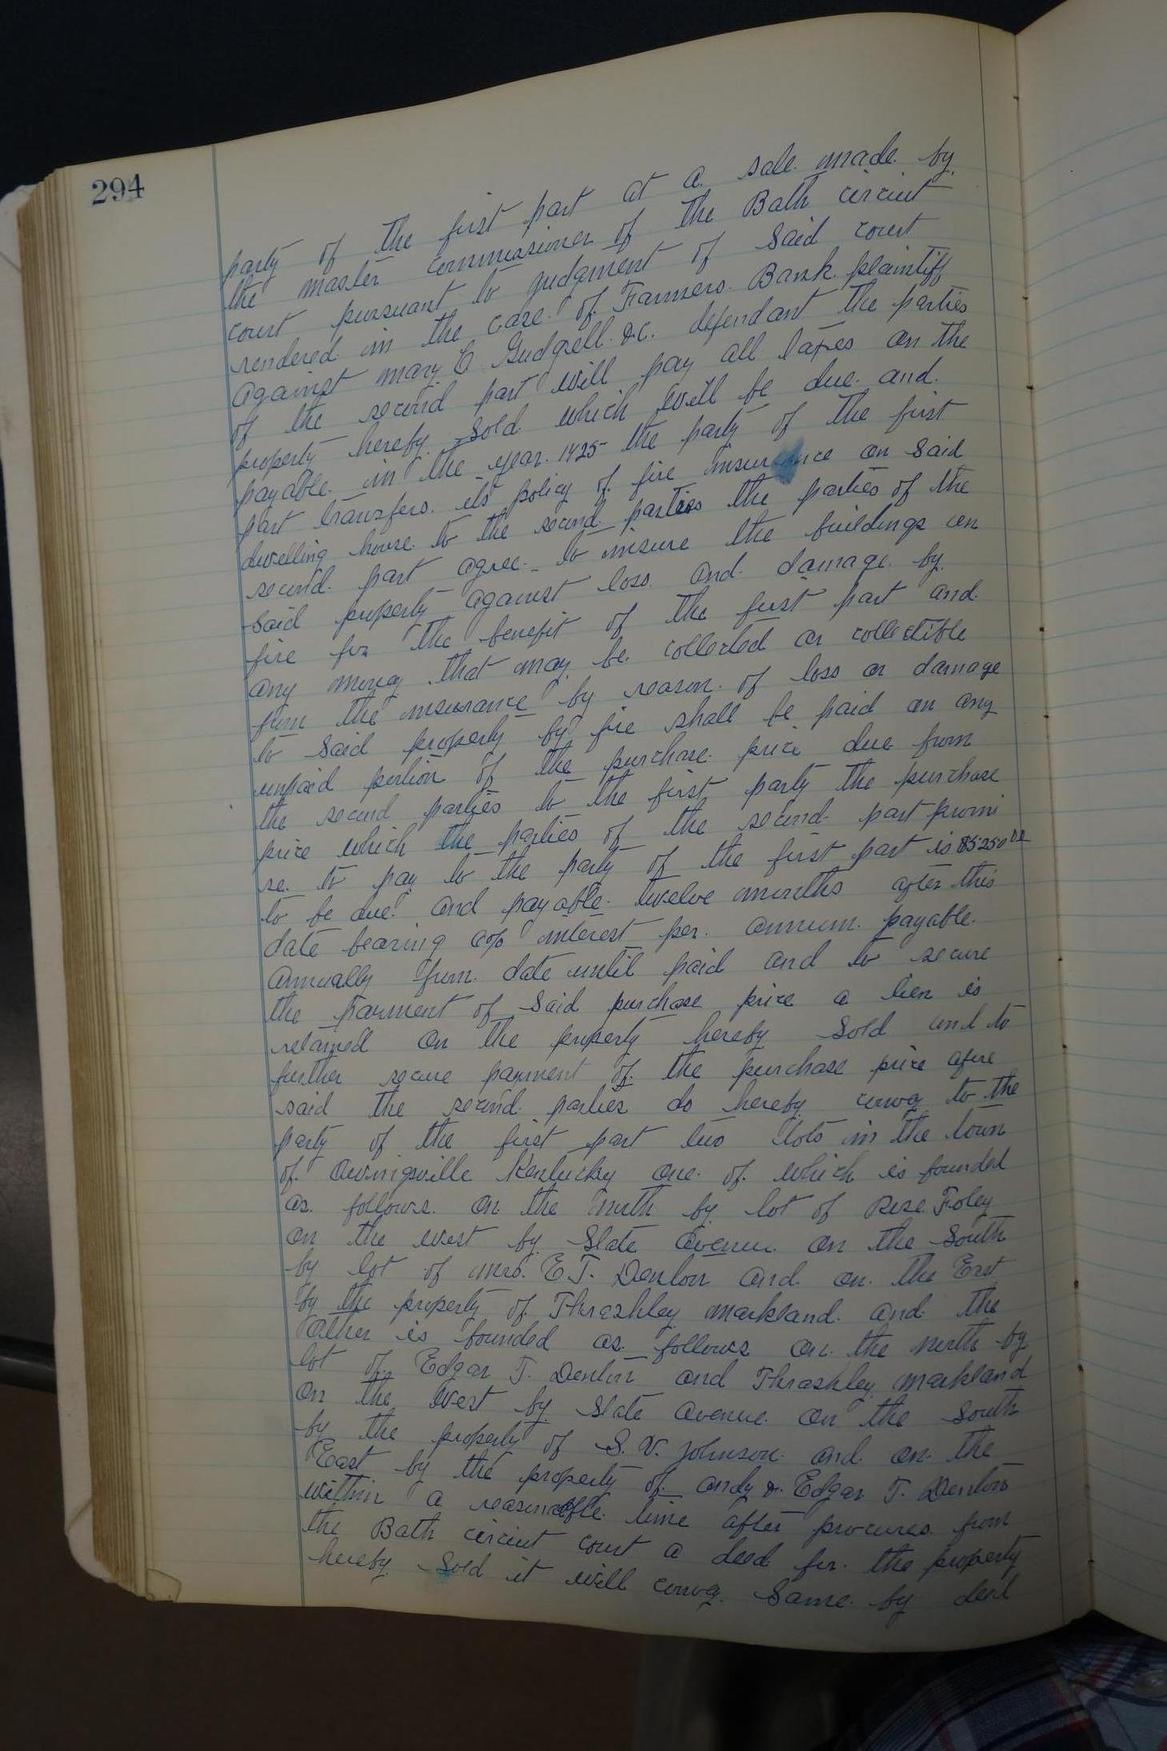 294
party of the first part at a sale made by
the master commissioner of the Bath circuit
court pursuant to judgment of said court
rendered in the case of Farmers Bank plaintiff
against mary C Gudgell &c. defendant the parties
of the second part will pay all taxes on the
property hereby sold which will be due and
payable in the year 1925 the party of the first
part transfers its policy of fire insurance on said
dwelling house to the second parties the parties of the
second part agree to insure the buildings on
said property against loss and damage by
fire for the benefit of the first part and
any money that may be collected or collectible
from the insurance by reason of loss or damage
to said property by fire shall be paid on any
unpaid portion of the purchase price due from
the second parties to the first party the purchase
price which the parties of the second part promi
se to pay to the party of the first part is
to be due and payable twelve months after this
date bearing 6% interest per annum payable
annually from date until paid and to secure
the payment of said purchase price a lien is
retained on the property hereby sold and to
further secure payment of the purchase price afore
said the second parties do hereby convey to the
party of the first part two lots in the town
of Owingsville Kentucky one of which is founded
as follows on the north by lot of Foley
on the west by Slate Avenue on the South
by lot of mrs. E T. Denton and on the East
by the property of Thrashley markland and the
other is founded as follows on the north by
lot of Edgar T. Denton and Thrashley markland
on the West by Slate avenue on the South
by the property of S. V. Johnson and on the
East by the property of Edgar T. Denton
within a reasonable time after procures from
the Bath circuit court a deed for the property
hereby sold it will convey same by deed